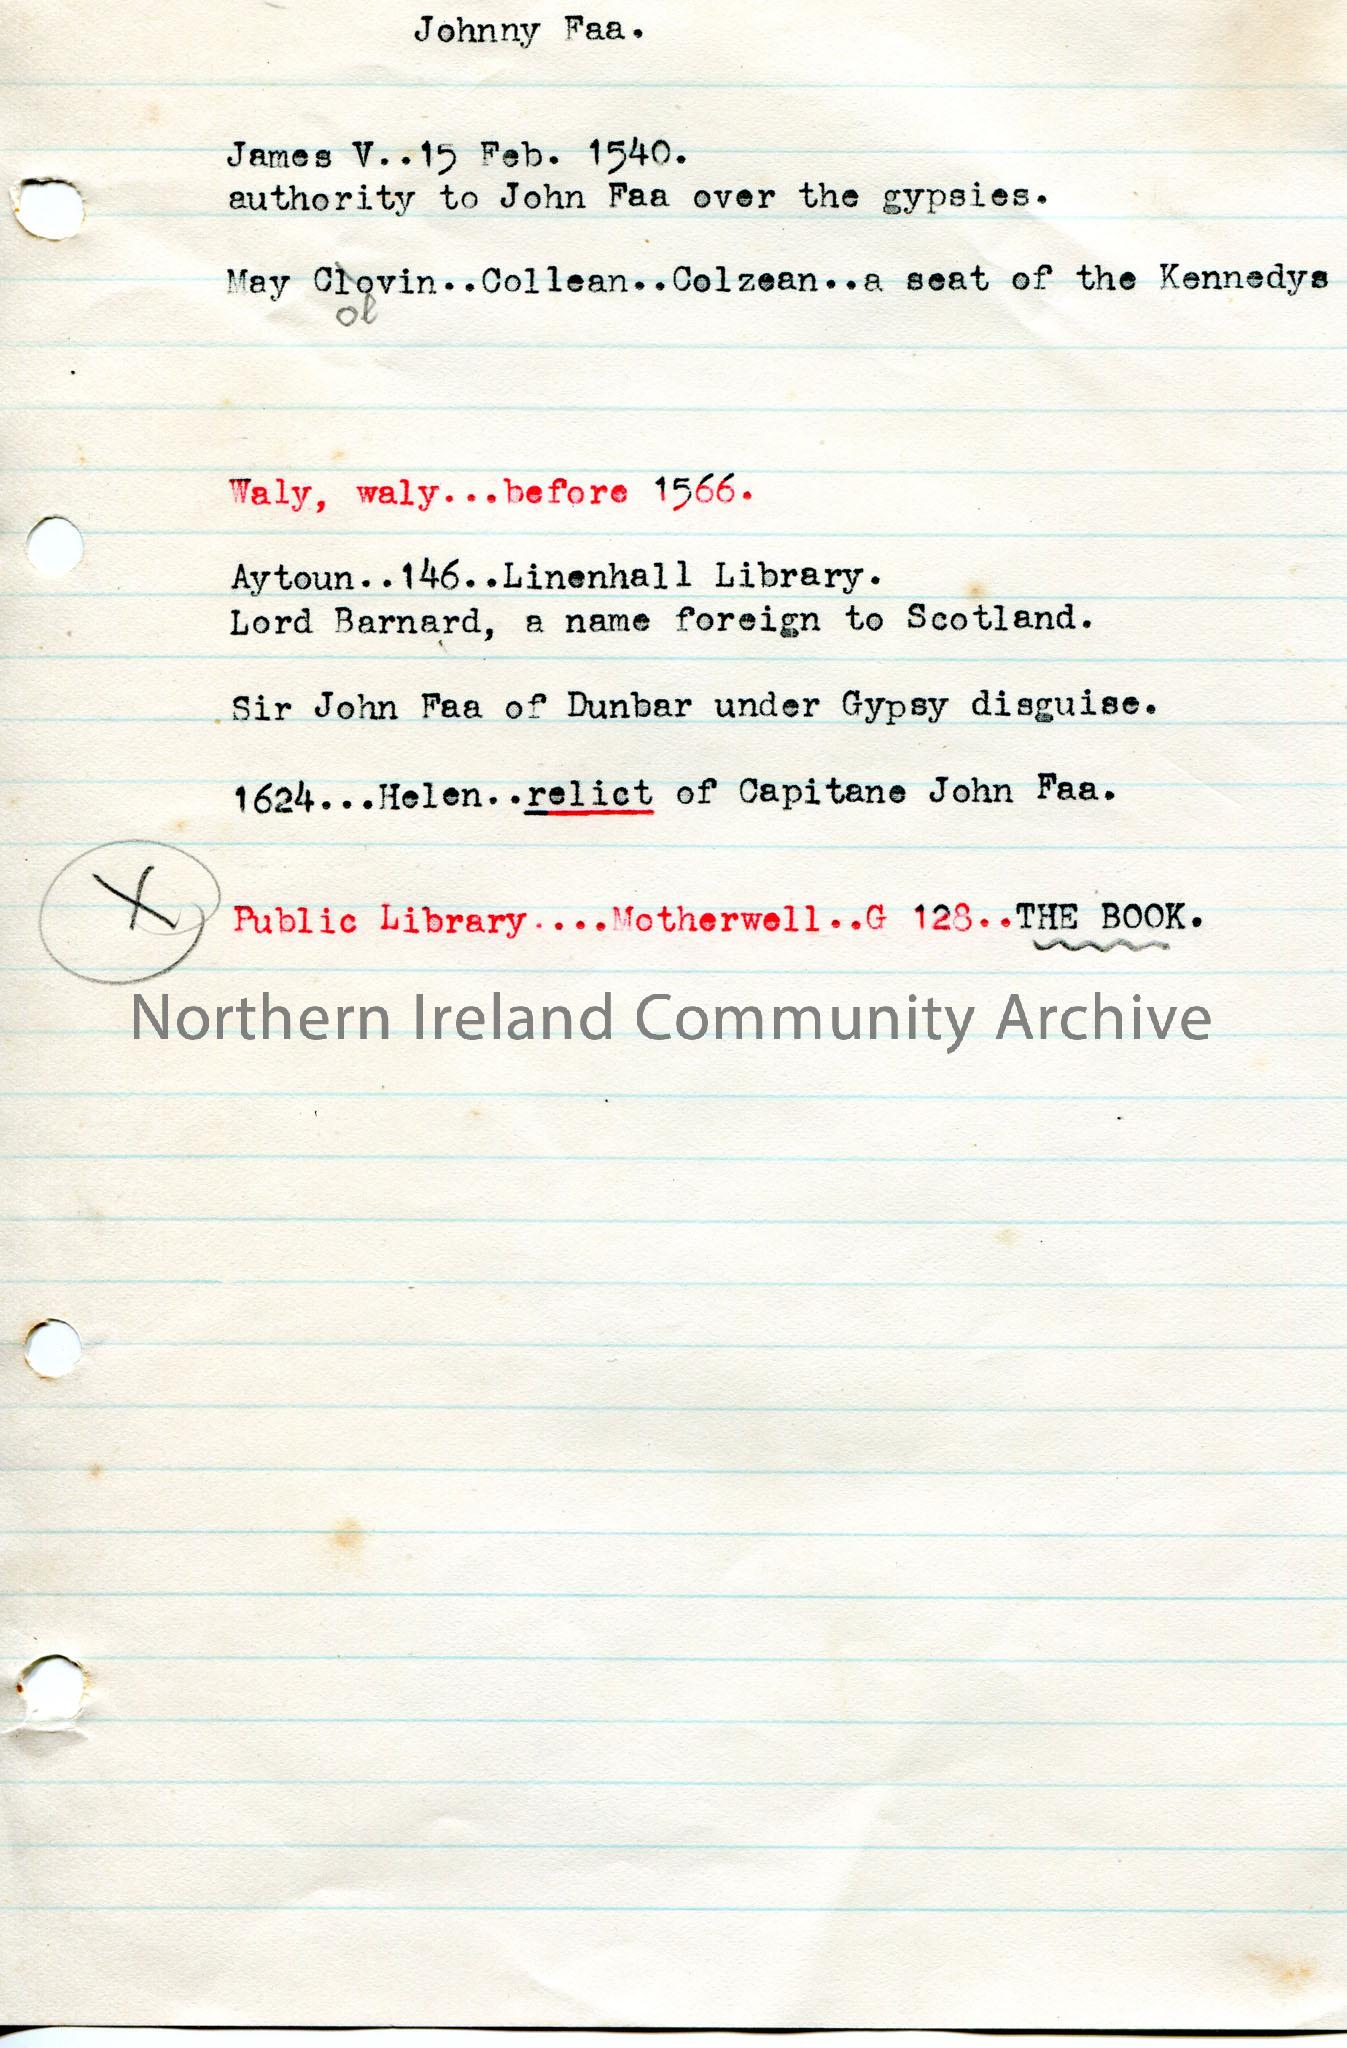 Johnny Faa.
James V..15 Feb. 1540.
authority to John Faa over the gypsies.
May Clovin..Collean..Colzean..a seat of the Kennedys
ol
Waly, waly...before 1566.
Aytoun..146..Linenhall Library.
Lord Barnard, a name foreign to Scotland.
Sir John Faa of Dunbar under Gypsy disguise.
1624...Helen..relict of Capitane John Faa.
X Public Library....Motherwell..G 128..THE BOOK.
Northern Ireland Community Archive